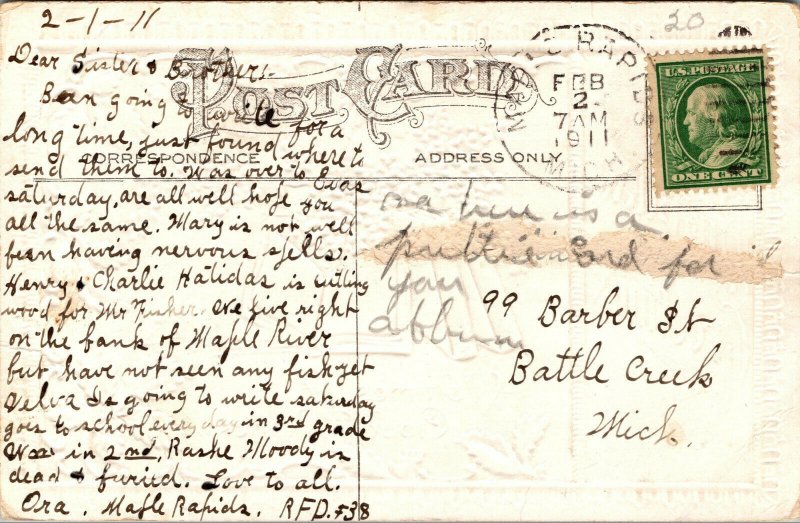 2-1-11
20
Dear Sister & Brother:-
POST CARD
Been going to write for a
long time, just found where to
send them to. Was over to Evas
CORRESPONDENCE
ADDRESS ONLY
saturday, are all well hope you
all the same. Mary is not well
been having nervous spells.
Henry & Charlie Halidas is cutting
wood for Mr Fisher. We live right
on the bank of Maple River
but have not seen any fish yet
Velva is going to write saturday
goes to school every day in 3rd grade
in 2nd, Moody is
dead & buried. Love to all.
Ora. Maple Rapids. RFD. #38
MAPLE RAPIDS
FEB
2
7AM
1911
MICH
U.S. POSTAGE
ONE CENT
here is a
card for
you
abbum
99 Barber St
Battle Creek
Mich.